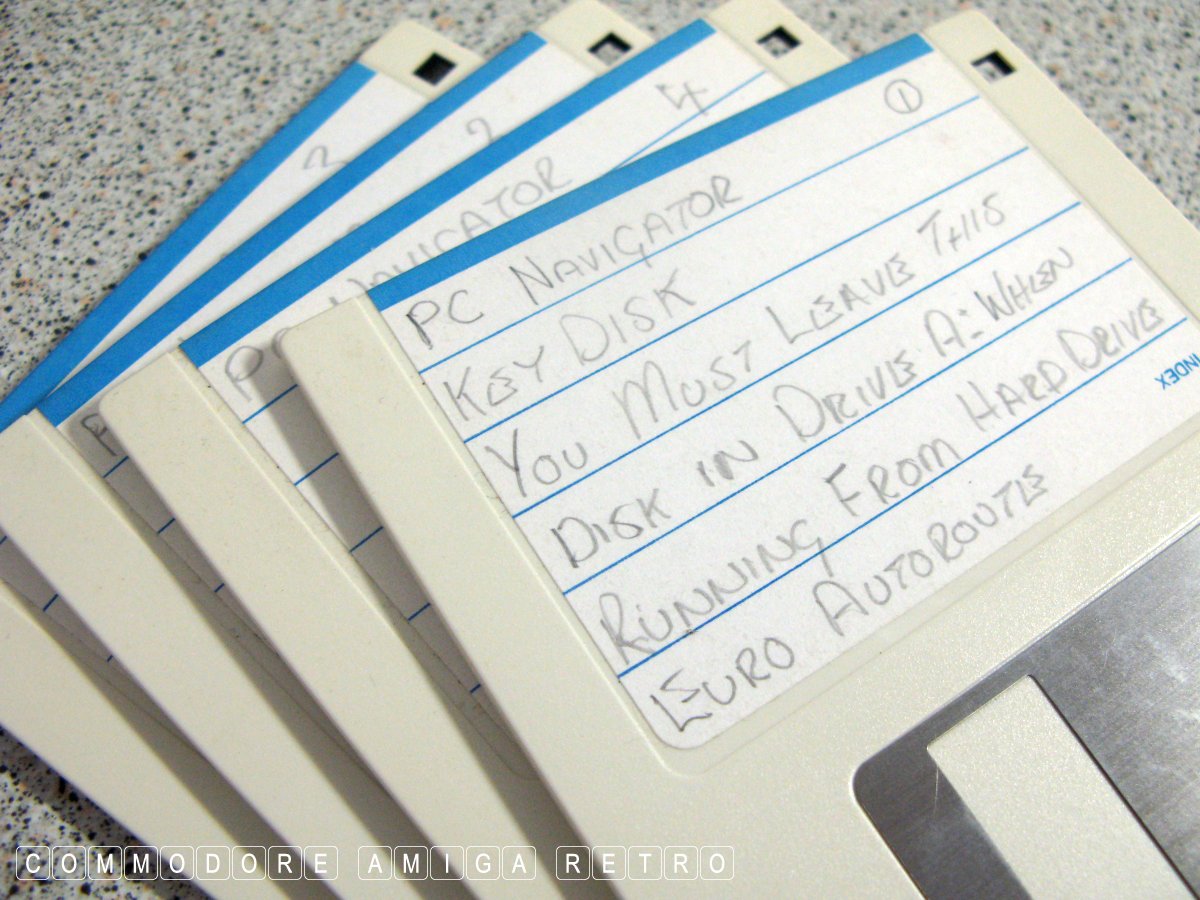 3
2
4
NAVIGATOR
PC
①
PC NAVIGATOR
KEY DISK
YOU MUST LEAVE THIS
DISK IN DRIVE A: WHEN
RUNNING FROM HARD DRIVE
EURO AUTOROUTE
INDEX
COMMODORE AMIGA RETRO